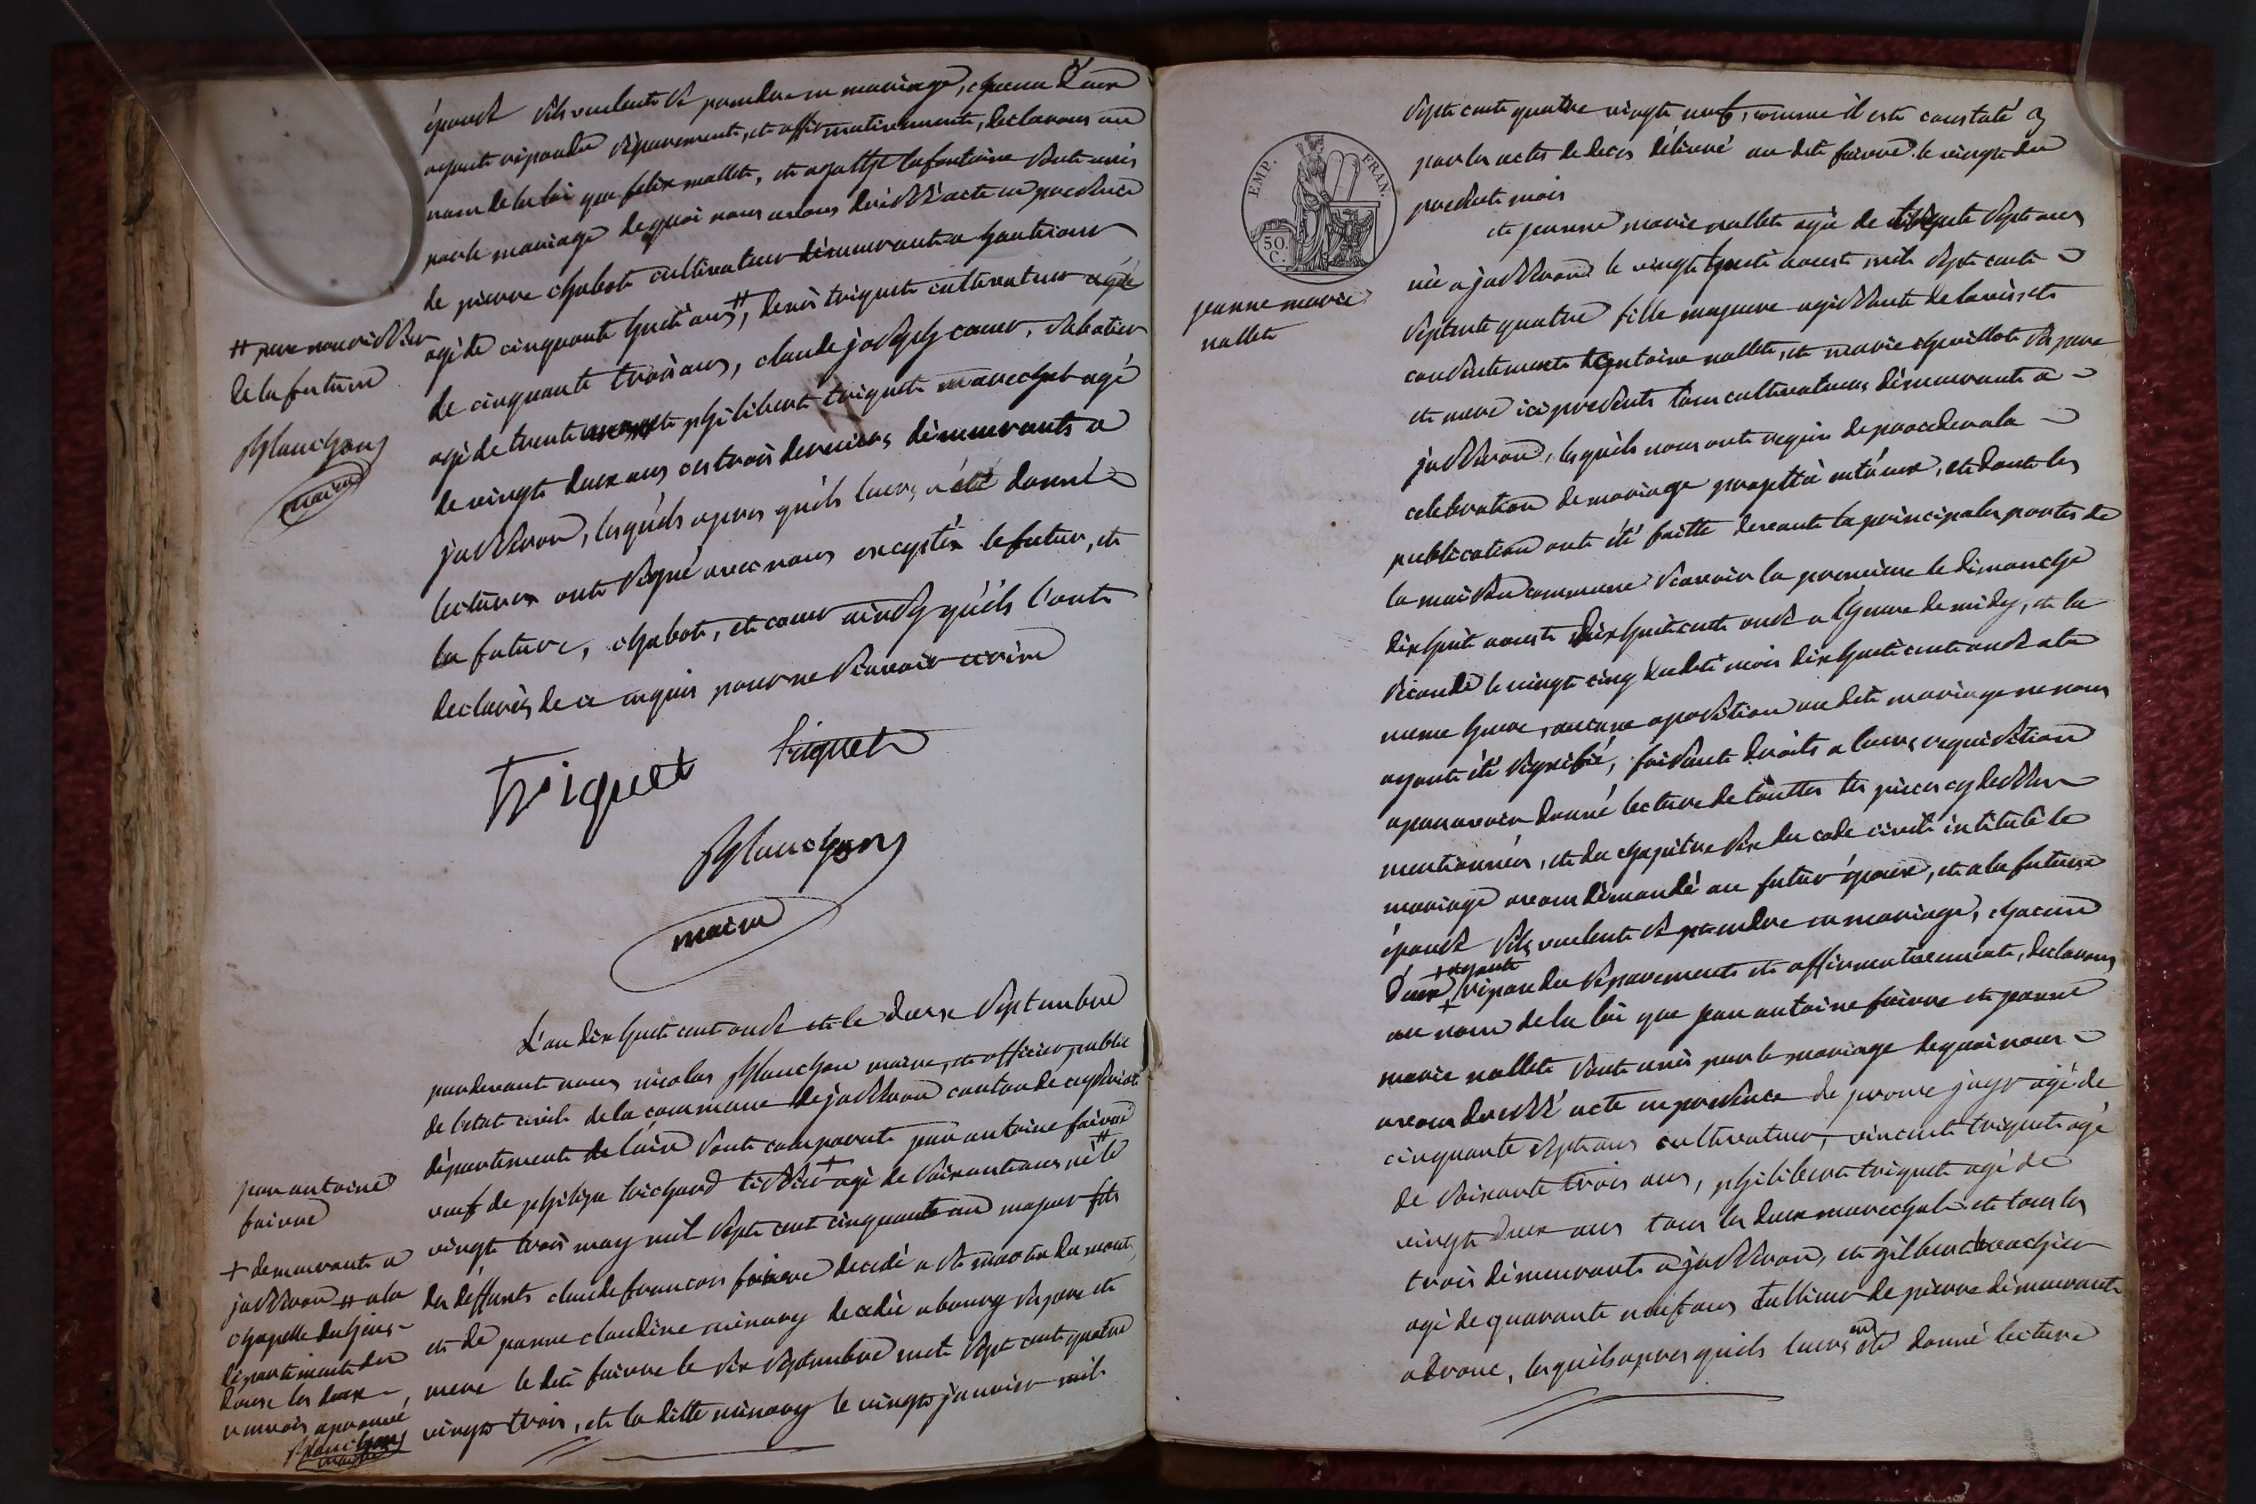 épouse s'ils veulent se prendre en mariage, chacun d'eux
ayant repondu séparement, et affirmativement, declarons au
nom de la loi que felix mallet, et agathe lafontaine sont unis
par le mariage de quoi nous avons dréssé acte en presence
de pierre chabot cultivateur démeurant a hautecour
agé de cinquante huit ans, # denis triquet cultivateur agé
de cinquante trois ans, claude joseph cour, sabotier
agé de trente et philibert triquet marechal agé
de vingt deux ans ces trois derniers démeurants a
jasseron, lesquels apres qu'ils leurs a été donné
lectures ont signé avec nous exceptés le futur, et
la future, chabot, et cour ainsy qu'ils l'ont
declarés de ce enquis pour ne scavoir ecrire
# pere nourissier
de la future
Planchon
maire
Triquet triquet
Planchon
maire
L'an dix huit cent onze et le douze septembre
pardevant nous nicolas Planchon maire, et officier public
de l'etat civil de la commune de jasseron canton de ceyseriat
département de l'ain sont comparut jean antoine faivre
veuf de philipe trichard tissier + agé de soixante ans né # le
vingt trois may mil sept cent cinquante un majeur fils
des deffunts claude francois faivre decedé a st martin du mont,
et de jeanne claudine minary decedée a bourg ses pere et
mere le dit faivre le six septembre mil sept cent quatre
vingt trois, et la ditte minary le vingt janvier mil
jean antoine
faivre
+ demeurant a
jasseron # a la
chapelle
département du
doux les deux
renvois aprouvé
Planchon
maire
EMP. FRAN.
50.
C.
sept cent quatre vingt neuf, comme il est constaté
par les actes de deces délivré au dit faivre le vingt du
present mois
et jeanne marie nallet agée de trente sept ans
née a jasseron le vingt huit aoust mil sept cent
septante quatre fille majeure agissante de l'avis et
consentement d'antoine nallet, et marie chevillot ses pere
et mere ici presents tous cultivateurs démeurants a
jasseron, lesquels nous ont requis de proceder a la
celebration de mariage projetté entr'eux, et dont les
publication ont été faitte devant la principale portes de
la maison commune scavoir la premiere le dimanche
dix huit aoust dix huit cent onze a l'heure de midy, et la
seconde le vingt cinq dudit mois dix huit cent onze a la
meme heure, aucune oposition au dit mariage ne nous
ayant été signifié, faisant droits a leurs requisition
apres avoir donné lecture de touttes les pieces cy dessus
mentionnées, et du chapitre six du code civil intitulé le
mariage avons démandé au futur époux, et a la future
épouse s'ils veulent se prendre en mariage, chacun
d'eux + ayant repondu séparement et affirmativement, declarons
au nom de la loi que jean antoine faivre et jeanne
marie nallet sont unis par le mariage de quoi nous
avons dressé acte en presence de pierre agé de
cinquante sept ans cultivateur, vincent triquet agé
de soixante trois ans, philibert triquet agé de
vingt deux ans tous les deux marechals et tous les
trois démeurants a jasseron, et gilbert
agé de quarante neuf ans tallieur de pierre démeurant
a drom, lesquels apres qu'ils leurs en été donné lecture
jeanne marie
nallet